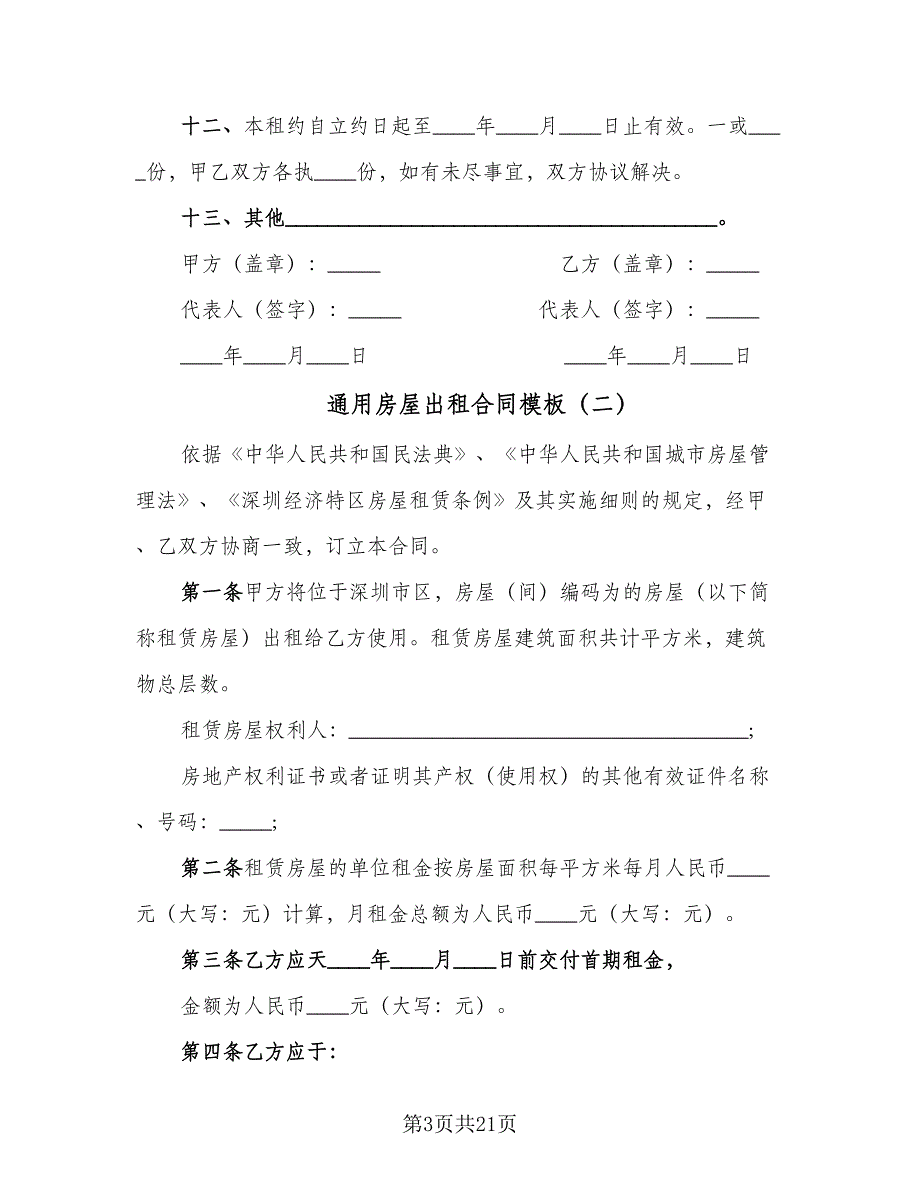 十二、本租约自立约日起至____年____月____日止有效。一或___
_份，甲乙双方各执____份，如有未尽事宜，双方协议解决。
十三、其他_________________________________________。
甲方（盖章）：_____ 乙方（盖章）：_____
代表人（签字）：_____ 代表人（签字）：_____
____年____月____日 ____年____月____日
通用房屋出租合同模板（二）
依据《中华人民共和国民法典》、《中华人民共和国城市房屋管
理法》、《深圳经济特区房屋租赁条例》及其实施细则的规定，经甲
、乙双方协商一致，订立本合同。
第一条甲方将位于深圳市区，房屋（间）编码为的房屋（以下简
称租赁房屋）出租给乙方使用。租赁房屋建筑面积共计平方米，建筑
物总层数。
租赁房屋权利人：______________________________________;
房地产权利证书或者证明其产权（使用权）的其他有效证件名称
、号码：_____;
第二条租赁房屋的单位租金按房屋面积每平方米每月人民币____
元（大写：元）计算，月租金总额为人民币____元（大写：元）。
第三条乙方应天____年____月____日前交付首期租金，
金额为人民币____元（大写：元）。
第四条乙方应于：
第3页共21页